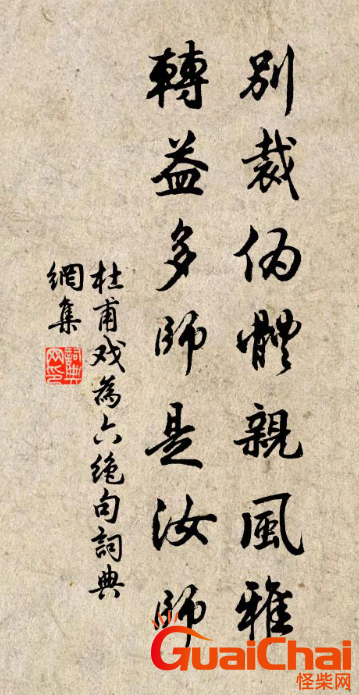 别裁伪體親風雅
轉益多師是汝師
杜甫戏為六绝句詞典
網集
詞典網印
GuaiChai
怪柴网